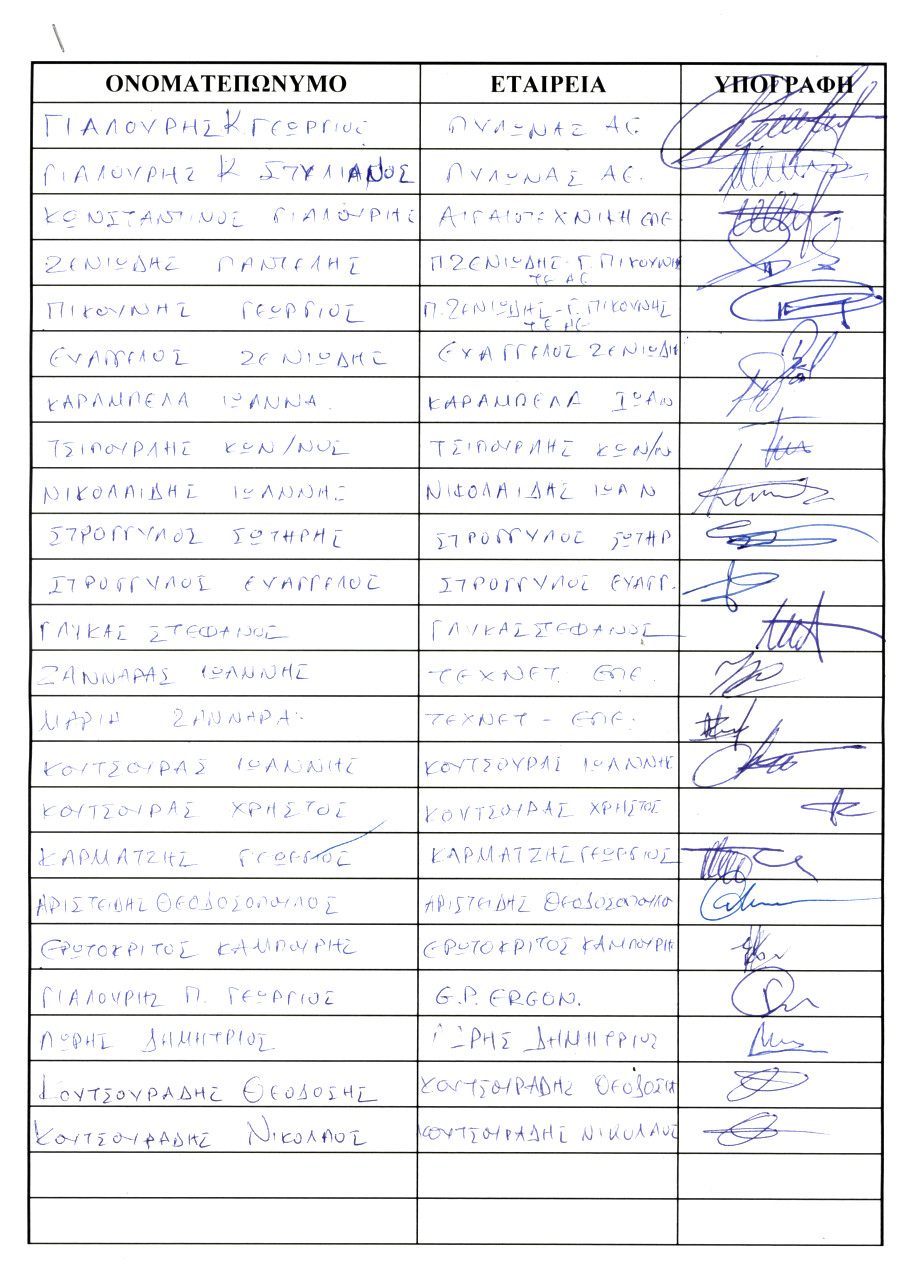 ΟΝΟΜΑΤΕΠΩΝΥΜΟ ΕΤΑΙΡΕΙΑ ΥΠΟΓΡΑΦΗ
ΓΙΑΛΟΥΡΗΣ Κ. ΓΕΩΡΓΙΟΣ ΠΥΛΩΝΑΣ ΑΕ.
ΓΙΑΛΟΥΡΗΣ Κ ΣΤΥΛΙΑΝΟΣ ΠΥΛΩΝΑΣ ΑΕ.
ΚΩΝΣΤΑΝΤΙΝΟΣ ΓΙΑΛΟΥΡΗΣ ΑΙΓΑΙΟΤΕΧΝΙΚΗ ΕΠΕ
ΖΕΝΙΩΔΗΣ ΠΑΝΤΕΛΗΣ Π ΖΕΝΙΩΔΗΣ - Γ. ΠΙΚΟΥΝΗ
ΤΕ ΑΕ
ΠΙΚΟΥΝΗΣ ΓΕΩΡΓΙΟΣ Π. ΖΕΝΙΩΔΗΣ - Γ. ΠΙΚΟΥΝΗΣ
ΤΕ ΑΕ
ΕΥΑΓΓΕΛΟΣ ΖΕΝΙΩΔΗΣ ΕΥΑΓΓΕΛΟΣ ΖΕΝΙΩΔΗ
ΚΑΡΑΜΠΕΛΑ ΙΩΑΝΝΑ. ΚΑΡΑΜΠΕΛΑ ΙΩΑΝ
ΤΣΙΠΟΥΡΛΗΣ ΚΩΝ/ΝΟΣ ΤΣΙΠΟΥΡΛΗΣ ΚΩΝ/Ν
ΝΙΚΟΛΑΙΔΗΣ ΙΩΑΝΝΗΣ ΝΙΚΟΛΑΙΔΗΣ ΙΩΑΝ
ΣΤΡΟΓΓΥΛΟΣ ΣΩΤΗΡΗΣ ΣΤΡΟΓΓΥΛΟΣ ΣΩΤΗΡ
ΣΤΡΟΓΓΥΛΟΣ ΕΥΑΓΓΕΛΟΣ ΣΤΡΟΓΓΥΛΟΣ ΕΥΑΓΓ.
ΓΛΥΚΑΣ ΣΤΕΦΑΝΟΣ ΓΛΥΚΑΣ ΣΤΕΦΑΝΟΣ
ΖΑΝΝΑΡΑΣ ΙΩΑΝΝΗΣ ΤΕΧΝΕΤ ΕΠΕ.
ΜΑΡΙΑ ΖΑΝΝΑΡΑ. ΤΕΧΝΕΤ - ΕΠΕ.
ΚΟΥΤΣΟΥΡΑΣ ΙΩΑΝΝΗΣ ΚΟΥΤΣΟΥΡΑΣ ΙΩΑΝΝΗΣ
ΚΟΥΤΣΟΥΡΑΣ ΧΡΗΣΤΟΣ ΚΟΥΤΣΟΥΡΑΣ ΧΡΗΣΤΟΣ
ΚΑΡΜΑΤΖΗΣ ΓΕΩΡΓΙΟΣ ΚΑΡΜΑΤΖΗΣ ΓΕΩΡΓΙΟΣ
ΑΡΙΣΤΕΙΔΗΣ ΘΕΟΔΟΣΟΠΟΥΛΟΣ ΑΡΙΣΤΕΙΔΗΣ ΘΕΟΔΟΣΟΠΟΥΛΟ
ΕΡΩΤΟΚΡΙΤΟΣ ΚΑΜΠΟΥΡΗΣ ΕΡΩΤΟΚΡΙΤΟΣ ΚΑΜΠΟΥΡΗ
ΓΙΑΛΟΥΡΗΣ Π. ΓΕΩΡΓΙΟΣ G.P. ERGON.
ΔΗΜΗΤΡΙΟΣ ΔΗΜΗΤΡΙΟΣ
ΚΟΥΤΣΟΥΡΑΔΗΣ ΘΕΟΔΟΣΗΣ ΚΟΥΤΣΟΥΡΑΔΗΣ ΘΕΟΔΟΣΗ
ΚΟΥΤΣΟΥΡΑΔΗΣ ΝΙΚΟΛΑΟΣ ΚΟΥΤΣΟΥΡΑΔΗΣ ΝΙΚΟΛΑΟΣ